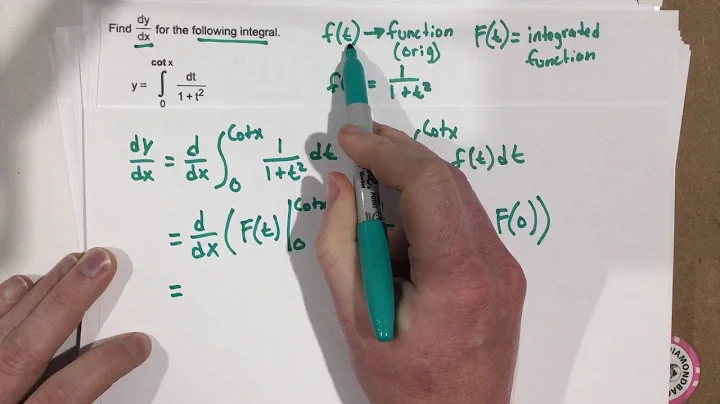 Find dy/dx for the following integral.
y = ∫₀^{cot x} dt/(1+t²)
f(t) → function
(orig)
F(t) = integrated
function
f( = 1/(1+t²)
dy/dx = d/dx ∫₀^{Cotx} 1/(1+t²) dt
Cotx
f(t) dt
= d/dx (F(t) |₀^{Cotx}
F(0))
=